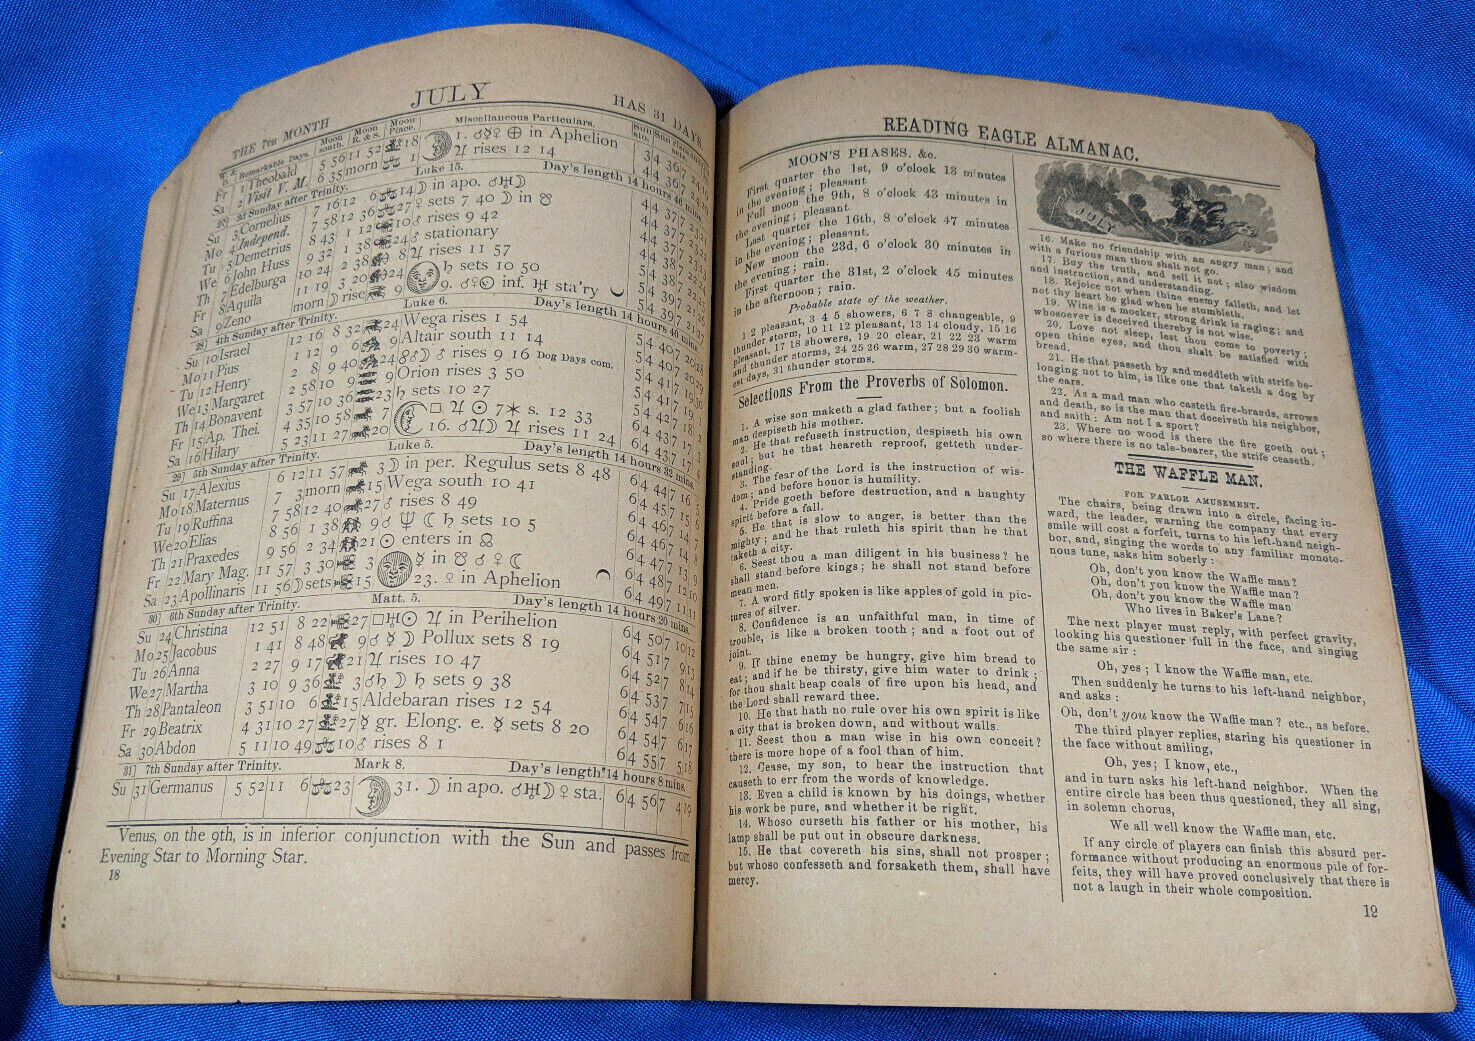 THE 7TH MONTH JULY HAS 31 DAYS
W. & D. Remarkable Days. Moon south. Moon R. & S. Moon Place. Miscellaneous Particulars.
Fr 1 Theobald 5 56 11 52 18 1. ☌☿♀ ⊕ in Aphelion
Sa 2 Visit V. M. 6 35 morn 1 ♃ rises 12 14
3d Sunday after Trinity. Luke 15. Day's length 14 hours 46 mins.
Su 3 Cornelius 7 16 12 6 14 ☽ in apo. ☌♅☽
Mo 4 Independ. 7 58 12 36 27 ♀ sets 7 40 ☽ in ☋
Tu 5 Demetrius 8 43 1 12 10 ♂ rises 9 42
We 6 John Huss 9 32 1 38 24 ♂ stationary
Th 7 Edelburga 10 24 2 38 8 ♃ rises 11 57
Fr 8 Aquila 11 19 3 20 24 ♄ sets 10 50
Sa 9 Zeno morn ☽ rise 9 9. ☌♀☉ inf. ♅ sta'ry
28] 4th Sunday after Trinity. Luke 6. Day's length 14 hours 40 mins.
Su 10 Israel 12 16 8 32 24 Wega rises 1 54
Mo 11 Pius 1 12 9 6 9 Altair south 11 14
Tu 12 Henry 2 8 9 40 24 ☍♂☽ ♂ rises 9 16 Dog Days com.
We 13 Margaret 2 58 10 9 9 Orion rises 3 50
Th 14 Bonavent 3 57 10 36 23 ♄ sets 10 27
Fr 15 Ap. Thei. 4 35 10 58 7 □ ♃ ☉ 7✶ s. 12 33
Sa 16 Hilary 5 23 11 27 20 16. ☌♃☽ ♃ rises 11 24
29] 5th Sunday after Trinity. Luke 5. Day's length 14 hours 32 mins.
Su 17 Alexius 6 12 11 57 3 ☽ in per. Regulus sets 8 48
Mo 18 Maternus 7 3 morn 15 Wega south 10 41
Tu 19 Ruffina 7 58 12 40 27 ♂ rises 8 49
We 20 Elias 8 56 1 38 9 ☌ ♆ ☾ ♄ sets 10 5
Th 21 Praxedes 9 56 2 34 21 ☉ enters in ♌
Fr 22 Mary Mag. 11 57 3 30 3 ☿ in ☋ ☌ ♀ ☾
Sa 23 Apollinaris 11 56 ☽ sets 15 23. ♀ in Aphelion
30] 6th Sunday after Trinity. Matt. 5. Day's length 14 hours 20 mins.
Su 24 Christina 12 51 8 22 27 □♅☉ ♃ in Perihelion
Mo 25 Jacobus 1 41 8 48 9 ☌ ☿ ☽ Pollux sets 8 19
Tu 26 Anna 2 27 9 17 21 ♃ rises 10 47
We 27 Martha 3 10 9 36 3 ☌♄ ☽ ♄ sets 9 38
Th 28 Pantaleon 3 51 10 6 15 Aldebaran rises 12 54
Fr 29 Beatrix 4 31 10 27 27 ☿ gr. Elong. e. ☿ sets 8 20
Sa 30 Abdon 5 11 10 49 10 ♂ rises 8 1
31] 7th Sunday after Trinity. Mark 8. Day's length 14 hours 8 mins.
Su 31 Germanus 5 52 11 6 23 31. ☽ in apo. ☌♅☽ ♀ sta. 6 4 56 7 4 19
Venus, on the 9th, is in inferior conjunction with the Sun and passes from
Evening Star to Morning Star.
18
READING EAGLE ALMANAC.
MOON'S PHASES, &c.
First quarter the 1st, 9 o'clock 13 minutes
in the evening; pleasant.
Full moon the 9th, 8 o'clock 43 minutes in
the evening; pleasant.
Last quarter the 16th, 8 o'clock 47 minutes
in the evening; pleasant.
New moon the 23d, 6 o'clock 30 minutes in
the evening; rain.
First quarter the 31st, 2 o'clock 45 minutes
in the afternoon; rain.
Probable state of the weather.
1 2 pleasant, 3 4 5 showers, 6 7 8 changeable, 9
thunder storm, 10 11 12 pleasant, 13 14 cloudy, 15 16
pleasant, 17 18 showers, 19 20 clear, 21 22 23 warm
and thunder storms, 24 25 26 warm, 27 28 29 30 warm-
est days, 31 thunder storms.
Selections From the Proverbs of Solomon.
1. A wise son maketh a glad father; but a foolish
man despiseth his mother.
2. He that refuseth instruction, despiseth his own
soul; but he that heareth reproof, getteth under-
standing.
3. The fear of the Lord is the instruction of wis-
dom; and before honor is humility.
4. Pride goeth before destruction, and a haughty
spirit before a fall.
5. He that is slow to anger, is better than the
mighty; and he that ruleth his spirit than he that
taketh a city.
6. Seest thou a man diligent in his business? he
shall stand before kings; he shall not stand before
mean men.
7. A word fitly spoken is like apples of gold in pic-
tures of silver.
8. Confidence is an unfaithful man, in time of
trouble, is like a broken tooth; and a foot out of
joint.
9. If thine enemy be hungry, give him bread to
eat; and if he be thirsty, give him water to drink;
for thou shalt heap coals of fire upon his head, and
the Lord shall reward thee.
10. He that hath no rule over his own spirit is like
a city that is broken down, and without walls.
11. Seest thou a man wise in his own conceit?
there is more hope of a fool than of him.
12. Cease, my son, to hear the instruction that
causeth to err from the words of knowledge.
13. Even a child is known by his doings, whether
his work be pure, and whether it be right.
14. Whoso curseth his father or his mother, his
lamp shall be put out in obscure darkness.
15. He that covereth his sins, shall not prosper;
but whoso confesseth and forsaketh them, shall have
mercy.
JULY
16. Make no friendship with an angry man; and
with a furious man thou shalt not go.
17. Buy the truth, and sell it not; also wisdom
and instruction, and understanding.
18. Rejoice not when thine enemy falleth, and let
not thy heart be glad when he stumbleth.
19. Wine is a mocker, strong drink is raging; and
whosoever is deceived thereby is not wise.
20. Love not sleep, lest thou come to poverty;
open thine eyes, and thou shalt be satisfied with
bread.
21. He that passeth by and meddleth with strife be-
longing not to him, is like one that taketh a dog by
the ears.
22. As a mad man who casteth fire-brands, arrows
and death, so is the man that deceiveth his neighbor,
and saith: Am not I a sport?
23. Where no wood is there the fire goeth out;
so where there is no tale-bearer, the strife ceaseth.
THE WAFFLE MAN.
FOR PARLOR AMUSEMENT.
The chairs, being drawn into a circle, facing in-
ward, the leader, warning the company that every
smile will cost a forfeit, turns to his left-hand neigh-
bor, and, singing the words to any familiar monoto-
nous tune, asks him soberly:
Oh, don't you know the Waffle man?
Oh, don't you know the Waffle man?
Oh, don't you know the Waffle man
Who lives in Baker's Lane?
The next player must reply, with perfect gravity,
looking his questioner full in the face, and singing
the same air:
Oh, yes; I know the Waffle man, etc.
Then suddenly he turns to his left-hand neighbor,
and asks:
Oh, don't you know the Waffle man? etc., as before.
The third player replies, staring his questioner in
the face without smiling,
Oh, yes; I know, etc.,
and in turn asks his left-hand neighbor. When the
entire circle has been thus questioned, they all sing,
in solemn chorus,
We all well know the Waffle man, etc.
If any circle of players can finish this absurd per-
formance without producing an enormous pile of for-
feits, they will have proved conclusively that there is
not a laugh in their whole composition.
19